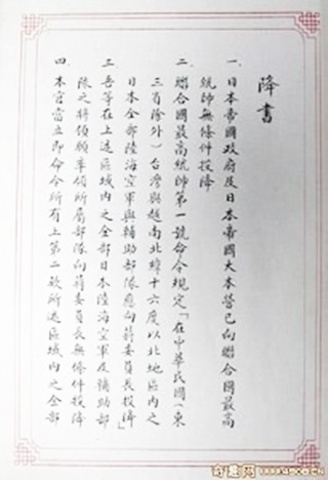 降書
一、日本帝國政府及日本帝國大本營已向聯合國最高
統帥無條件投降
二、聯合國最高統帥第一號命令規定「在中華民國(東
三省除外)台灣與越南北緯十六度以北地區內之
日本全部陸海空軍與輔助部隊應向蔣委員長投降」
三、吾等在上述區域內之全部日本陸海空軍及輔助部
隊之將領願率領所屬部隊向蔣委員長無條件投降
四、本官當立即命令所有上第二款所述區域內之全部